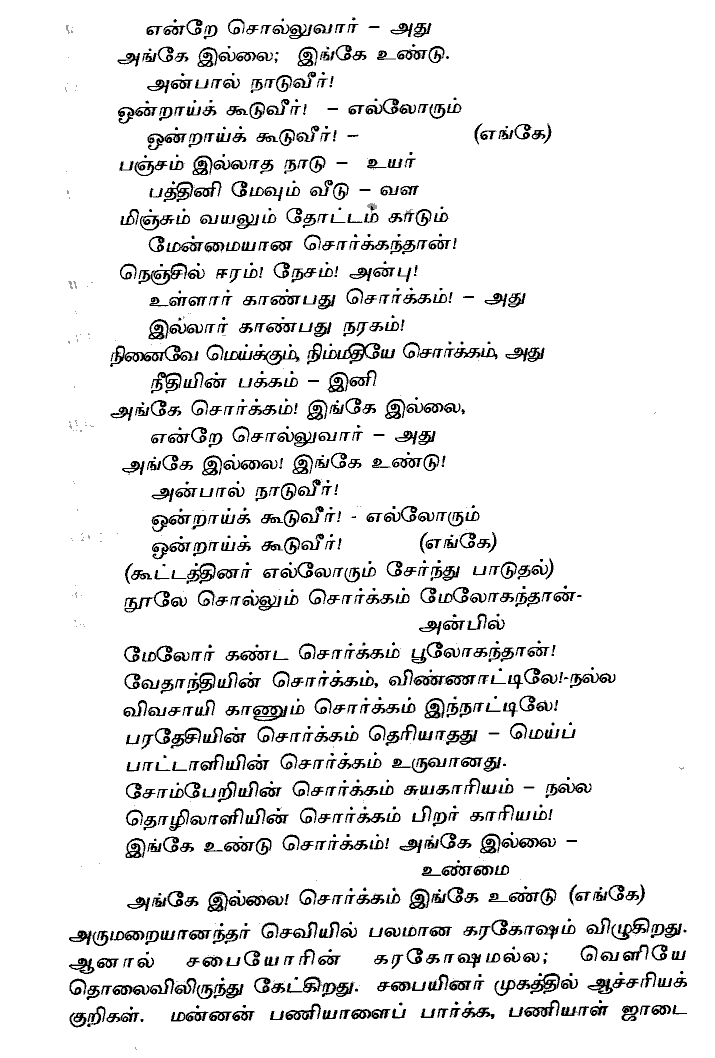 என்றே சொல்லுவார் – அது
அங்கே இல்லை; இங்கே உண்டு.
அன்பால் நாடுவீர்!
ஒன்றாய்க் கூடுவீர்! – எல்லோரும்
ஒன்றாய்க் கூடுவீர்! – (எங்கே)
பஞ்சம் இல்லாத நாடு – உயர்
பத்தினி மேவும் வீடு – வள
மிஞ்சும் வயலும் தோட்டம் காடும்
மேன்மையான சொர்க்கந்தான்!
நெஞ்சில் ஈரம்! நேசம்! அன்பு!
உள்ளார் காண்பது சொர்க்கம்! – அது
இல்லார் காண்பது நரகம்!
நினைவே மெய்க்கும், நிம்மதியே சொர்க்கம், அது
நீதியின் பக்கம் – இனி
அங்கே சொர்க்கம்! இங்கே இல்லை,
என்றே சொல்லுவார் – அது
அங்கே இல்லை! இங்கே உண்டு!
அன்பால் நாடுவீர்!
ஒன்றாய்க் கூடுவீர்! - எல்லோரும்
ஒன்றாய்க் கூடுவீர்! (எங்கே)
(கூட்டத்தினர் எல்லோரும் சேர்ந்து பாடுதல்)
நூலே சொல்லும் சொர்க்கம் மேலோகந்தான்-
அன்பில்
மேலோர் கண்ட சொர்க்கம் பூலோகந்தான்!
வேதாந்தியின் சொர்க்கம், விண்ணாட்டிலே!-நல்ல
விவசாயி காணும் சொர்க்கம் இந்நாட்டிலே!
பரதேசியின் சொர்க்கம் தெரியாதது – மெய்ப்
பாட்டாளியின் சொர்க்கம் உருவானது.
சோம்பேறியின் சொர்க்கம் சுயகாரியம் – நல்ல
தொழிலாளியின் சொர்க்கம் பிறர் காரியம்!
இங்கே உண்டு சொர்க்கம்! அங்கே இல்லை –
உண்மை
அங்கே இல்லை! சொர்க்கம் இங்கே உண்டு (எங்கே)
அருமறையானந்தர் செவியில் பலமான கரகோஷம் விழுகிறது.
ஆனால் சபையோரின் கரகோஷமல்ல; வெளியே
தொலைவிலிருந்து கேட்கிறது. சபையினர் முகத்தில் ஆச்சரியக்
குறிகள். மன்னன் பணியாளைப் பார்க்க, பணியாள் ஜாடை